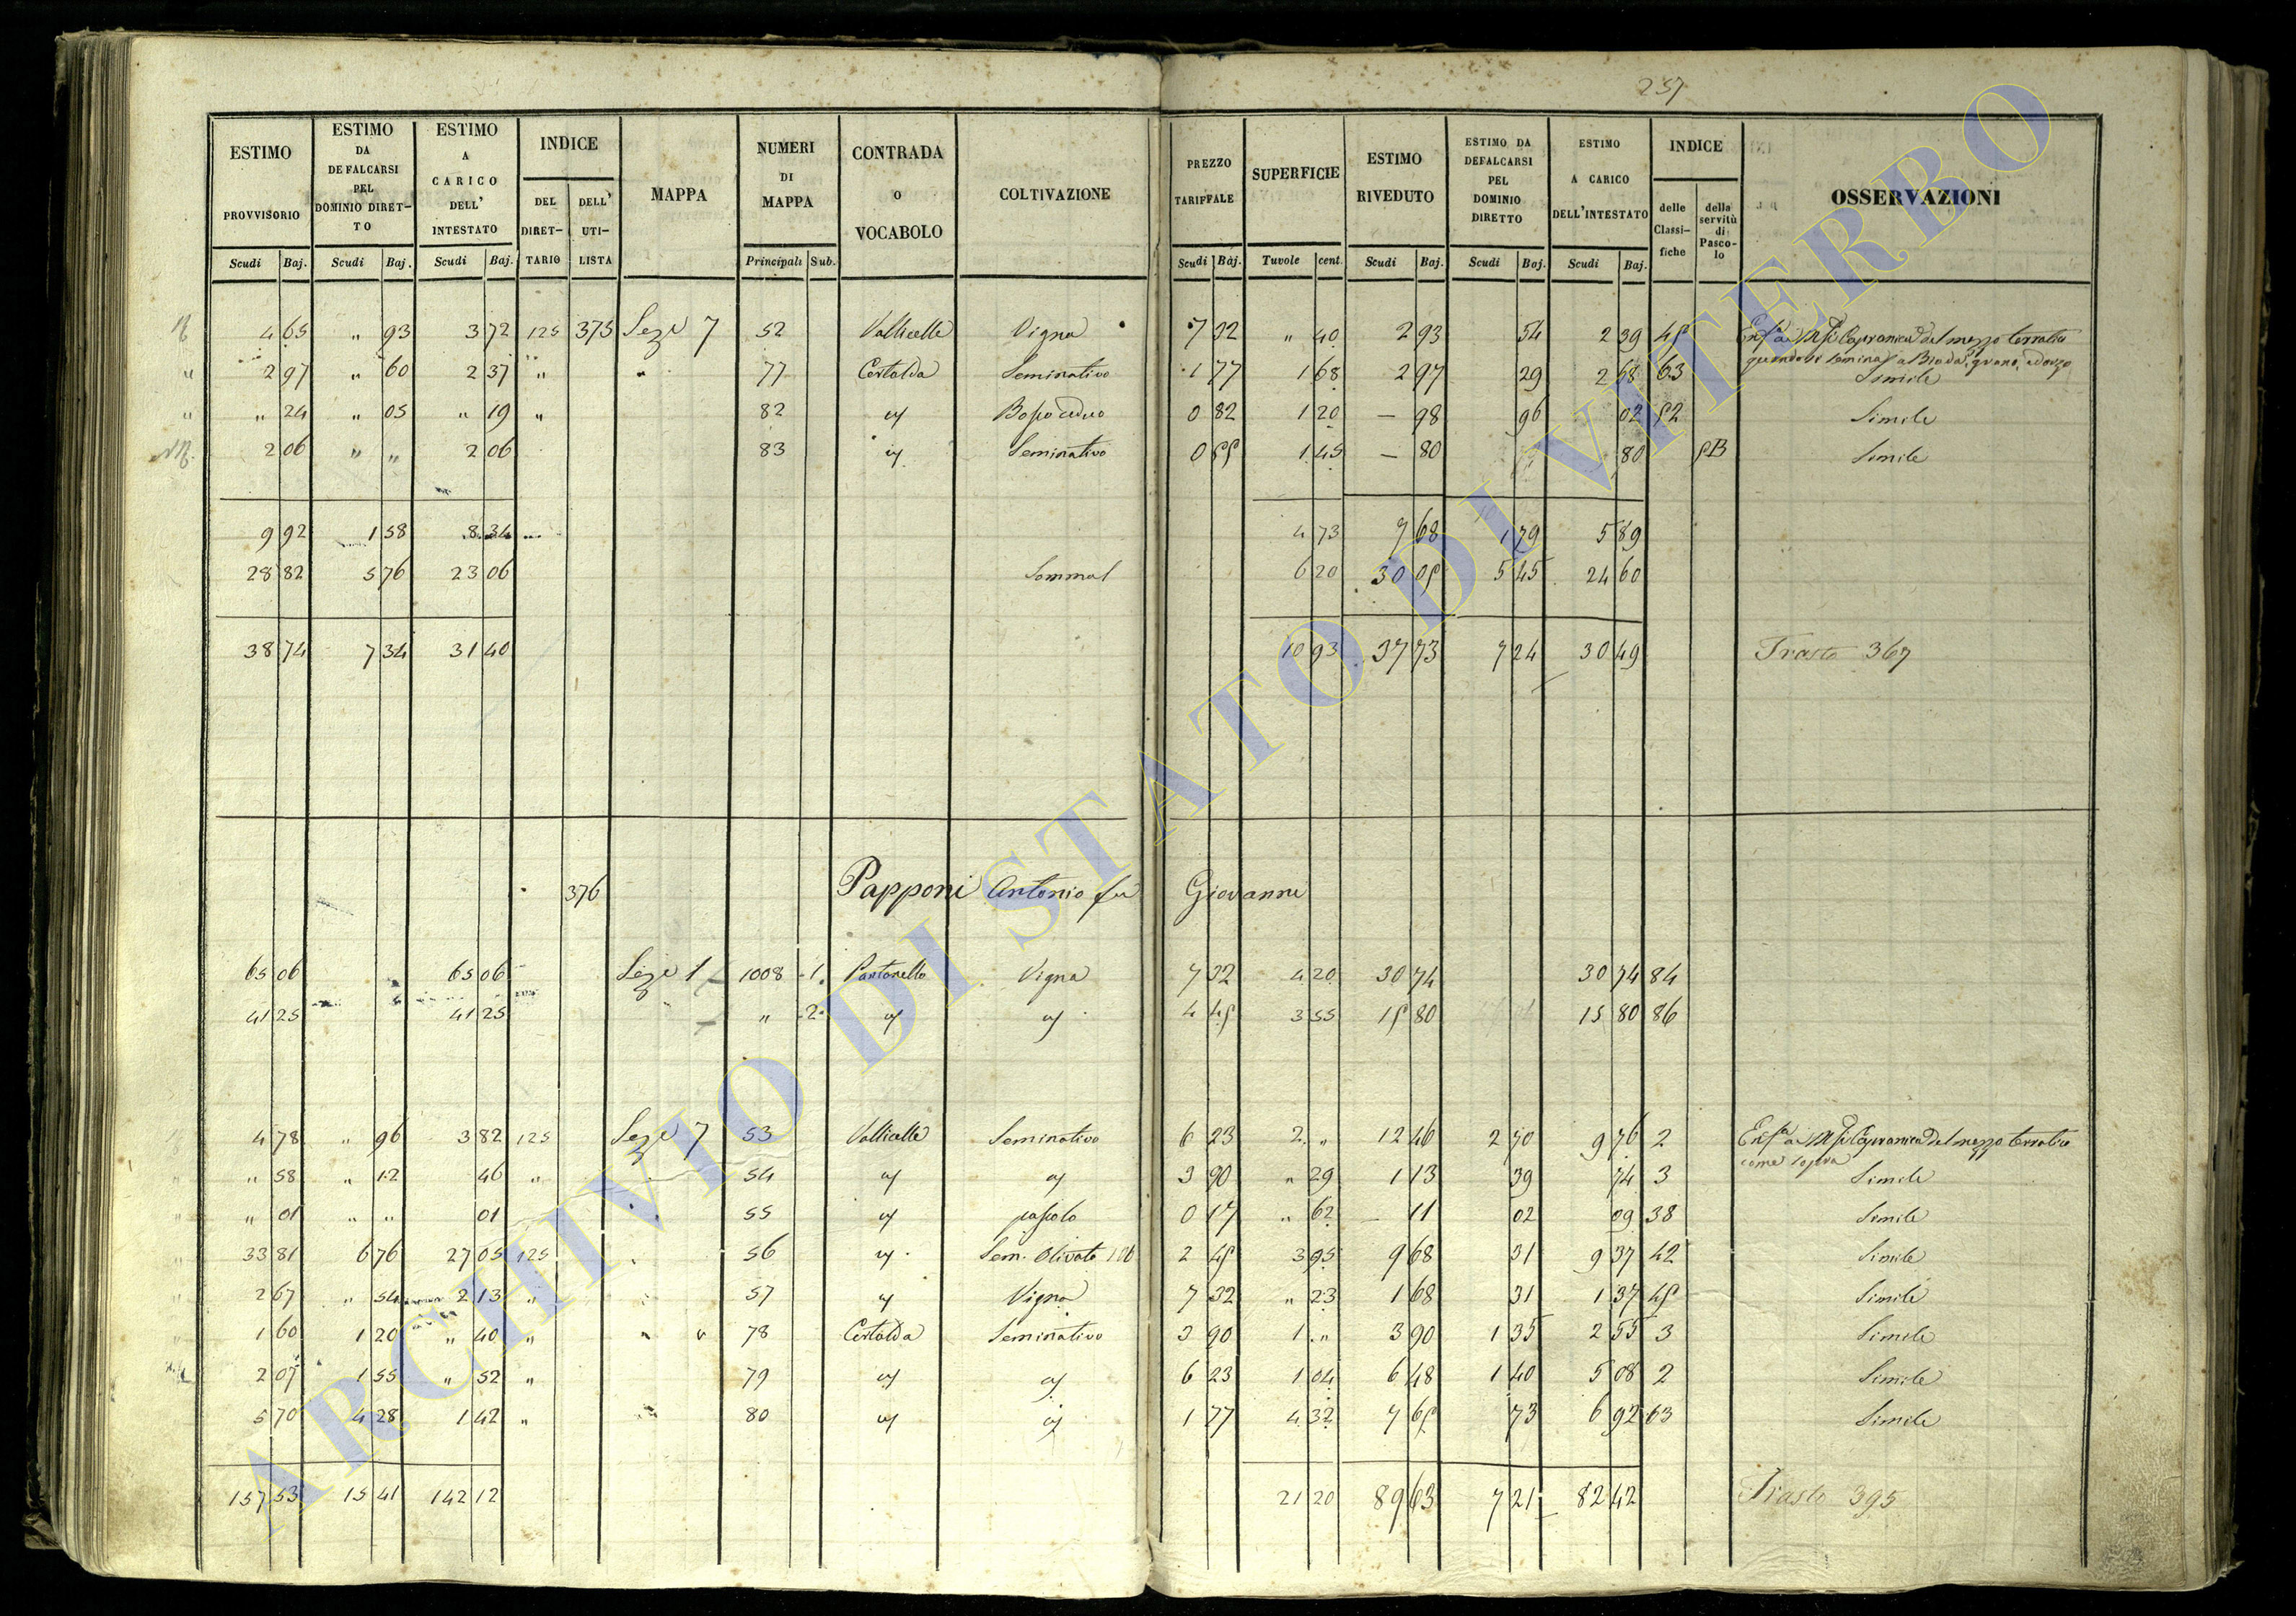 257
ESTIMO PROVVISORIO Scudi Baj.
ESTIMO DA DEFALCARSI PEL DOMINIO DIRETTO Scudi Baj.
ESTIMO A CARICO DELL' INTESTATO Scudi Baj.
INDICE DEL DIRETTARIO DELL' UTILISTA
MAPPA
NUMERI DI MAPPA Principali Sub.
CONTRADA O VOCABOLO
COLTIVAZIONE
PREZZO TARIFFALE Scudi Baj.
SUPERFICIE Tavole cent.
ESTIMO RIVEDUTO Scudi Baj.
ESTIMO DA DEFALCARSI PEL DOMINIO DIRETTO Scudi Baj.
ESTIMO A CARICO DELL'INTESTATO Scudi Baj.
INDICE delle Classifiche della servitù di Pascolo
OSSERVAZIONI
4 65 " 93 3 72 125 375 Seze 7 52 Vallicelle Vigna 7 32 " 40 2 93 54 2 39 45 Enfa a Capranica del mezzo terratico
quando si semina a Biada, grano, ed orzo
2 97 " 60 2 37 " " 77 Certalda Seminativo 1 77 1 68 2 97 29 2 68 63 Simile
" 24 " 05 " 19 " 82 Bosco ceduo 0 82 1 20 — 98 96 02 52 Simile
2 06 " " 2 06 83 Seminativo 0 55 1 45 — 80 80 5B Simile
9 92 1 58 8 34 4 73 7 68 1 79 5 89
28 82 5 76 23 06 Sommal 6 20 30 05 5 45 24 60
38 74 7 34 31 40 10 93 37 73 7 24 30 49 Trasto 367
376 Papponi Antonio fu Giovanni
65 06 65 06 Seze 1 1008 1 Pantanello Vigna 7 32 4 20 30 74 30 74 84
41 25 41 25 " 2 4 45 3 55 15 80 15 80 86
4 78 " 96 3 82 125 Seze 7 53 Vallicelle Seminativo 6 23 2 " 12 46 2 70 9 76 2 Enfa a Capranica del mezzo terratico
come sopra
" 58 " 12 46 " 54 3 90 " 29 1 13 39 74 3 Simile
" 01 " " 01 55 pascolo 0 17 " 62 — 11 02 09 38 Simile
33 81 6 76 27 05 125 56 Sem. Olivato 2 45 3 95 9 68 31 9 37 42 Simile
2 67 " 54 2 13 " 57 Vigna 7 32 " 23 1 68 31 1 37 45 Simile
1 60 1 20 " 40 " " " 78 Certalda Seminativo 3 90 1 " 3 90 1 35 2 55 3 Simile
2 07 1 55 " 52 " 79 6 23 1 04 6 48 1 40 5 08 2 Simile
5 70 4 28 1 42 " 80 1 77 4 32 7 65 73 6 92 63 Simile
157 53 15 41 142 12 21 20 89 63 7 21 82 42 Trasto 395
ARCHIVIO DI STATO DI VITERBO